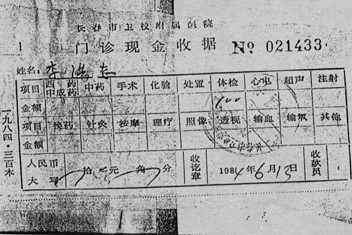 长春市卫校附属医院
1 门诊现金收据 № 021433
姓名：李
项目 西药 中成药 中药 手术 化验 处置 体检 心电 超声 注射
金额
项目 换药 针灸 按摩 理疗 照像 透视 输血 输氧 其他
金额
人民币大写 拾 元 角 分 收讫章 1984年6月13日 收款员
一九八四·三百本